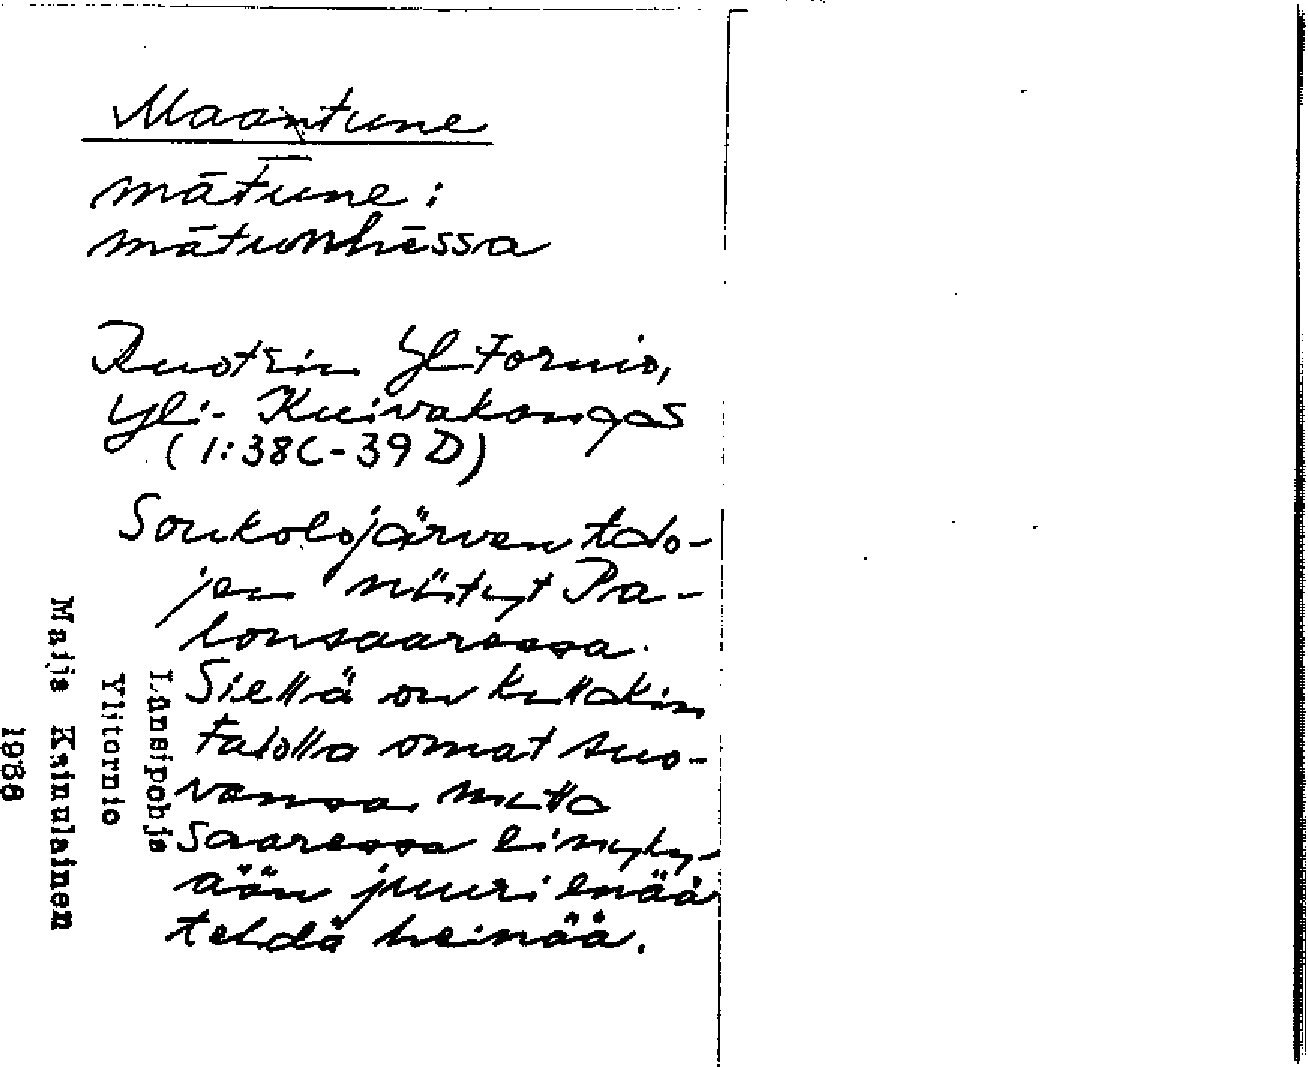 Maantune
mātune:
mātunhēssa
Ruotsin Ylitornio,
Yli-Kuivakangas
(1:38C-39D)
Soukolojärven talo-
jen niityt Pa-
lonsaaressa.
Siellä on kullakin
talolla omat suo-
vansa mutta
saaressa ei nyky-
ään juuri enää
tehdä heinää.
Länsipohja
Ylitornio
Maija Kainulainen
1988